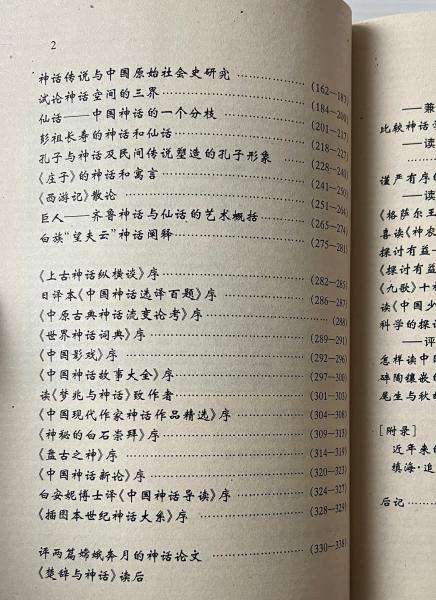 2
神话传说与中国原始社会史研究 …… (162—183)
试论神话空间的三界 …… (184—200)
仙话——中国神话的一个分枝 …… (201—217)
彭祖长寿的神话和仙话 …… (218—227)
孔子与神话及民间传说塑造的孔子形象 …… (228—240)
《庄子》的神话和寓言 …… (241—250)
《西游记》散论 …… (251—264)
巨人——齐鲁神话与仙话的艺术概括 …… (265—274)
白族“望夫云”神话阐释 …… (275—281)
《上古神话纵横谈》序 …… (282—285)
日译本《中国神话选译百题》序 …… (286—287)
《中原古典神话流变论考》序 …… (288)
《世界神话词典》序 …… (289—291)
《中国影戏》序 …… (292—296)
《中国神话故事大全》序 …… (297—300)
读《梦兆与神话》致作者 …… (301—303)
《中国现代作家神话作品精选》序 …… (304—308)
《神秘的白石崇拜》序 …… (309—313)
《盘古之神》序 …… (314—319)
《中国神话新论》序 …… (320—323)
白安妮博士译《中国神话导读》序 …… (324—327)
《插图本世纪神话大系》序 …… (328—329)
评两篇嫦娥奔月的神话论文 …… (330—338)
《楚辞与神话》读后
——兼
比较神话学
——读
谨严有序的
——读
《格萨尔王
喜读《神农
探讨有益
《探讨有益
《九歌》十
读《中国少
科学的探讨
——评
怎样读中国
碎陶镶嵌的
尾生与秋胡
[附录]
近年来的
填海·追
后记